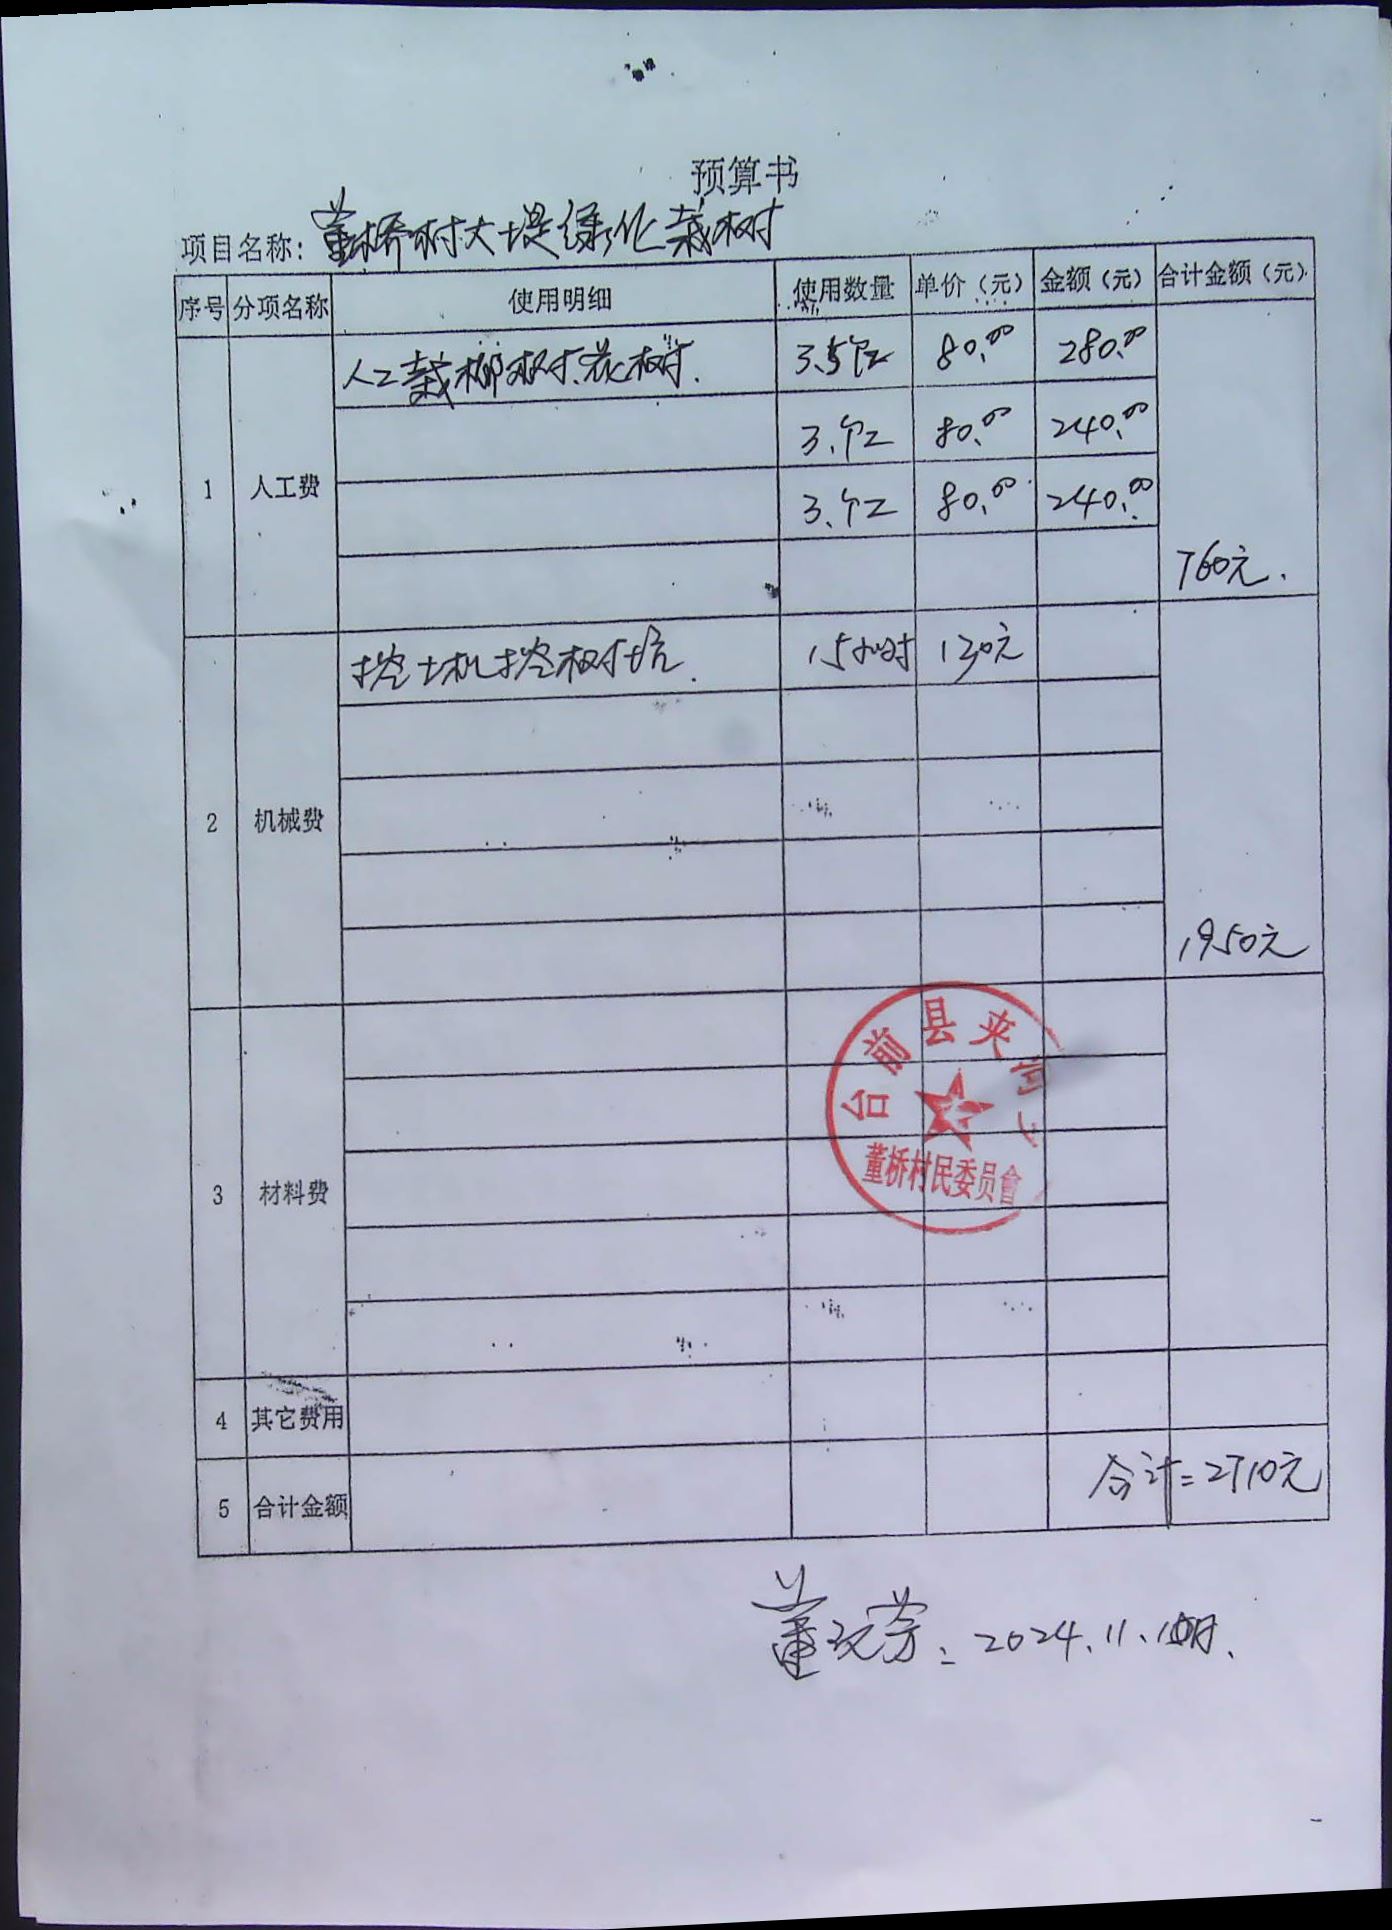 预算书
项目名称：董桥村大堤绿化栽树
序号 分项名称 使用明细 使用数量 单价（元） 金额（元） 合计金额（元）
1 人工费 人工栽柳树、花树. 3.5个工 80.00 280.00
3.个工 80.00 240.00
3.个工 80.00 240.00
760元.
2 机械费 挖土机挖树坑. 15小时 130元
1950元
3 材料费
台前县夹河
董桥村民委员會
4 其它费用
5 合计金额 合计=2710元
董 芳: 2024.11.